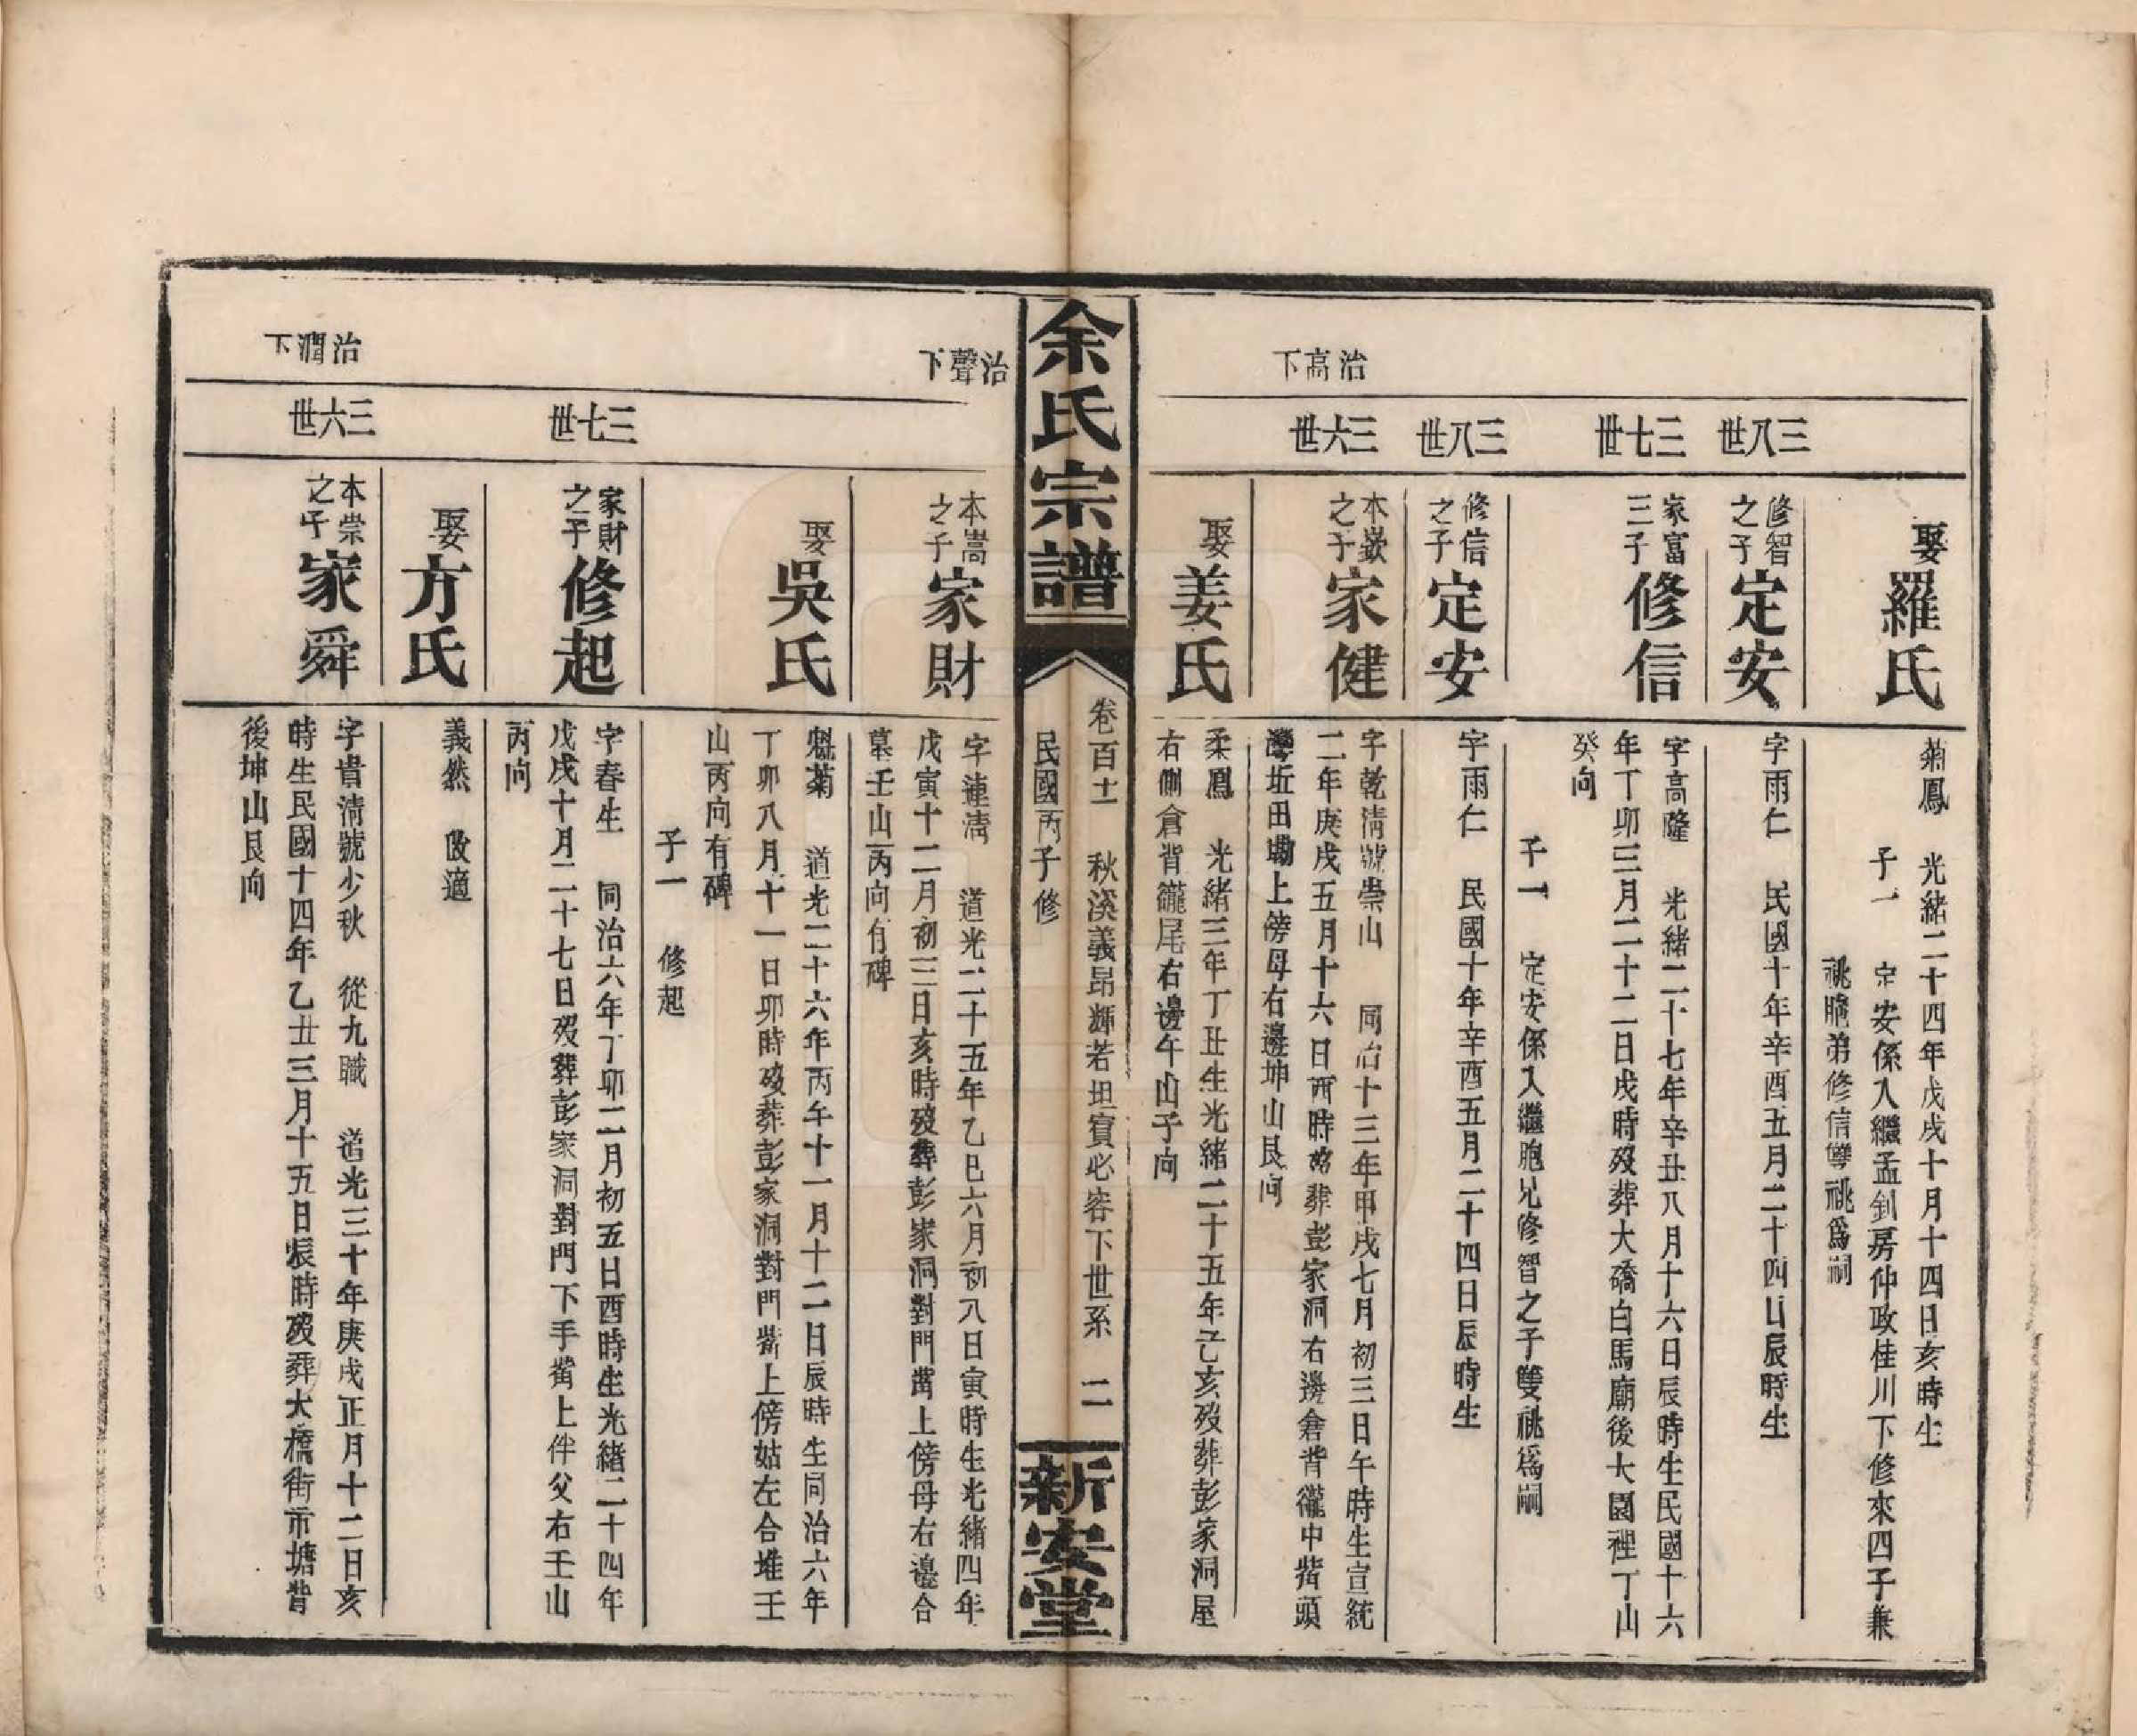 治高下
三八世
三七世
三八世
三六世
娶羅氏
菊鳳　光緒二十四年戊戌十月十四日亥時生
子一　定安係入繼孟釗房仲政桂川下修來四子兼
祧胞弟修信雙祧爲嗣
修智之子定安
字雨仁　民國十年辛酉五月二十四日辰時生
家富三子修信
字高隆　光緒二十七年辛丑八月十六日辰時生民國十六
年丁卯三月二十二日戌時歿葬大礄白馬廟後大園裡丁山
癸向
子一　定安係入繼胞兄修智之子雙祧爲嗣
修信之子定安
字雨仁　民國十年辛酉五月二十四日辰時生
本嶽之子家健
字乾清號崇山　同治十三年甲戌七月初三日午時生宣統
二年庚戌五月十六日酉時歿葬彭家洞右邊倉背巃中嘴頭
灣坵田塝上傍母右邊坤山艮向
娶姜氏
柔鳳　光緒三年丁丑生光緒二十五年己亥歿葬彭家洞屋
右側倉背巃尾右邊午山子向
余氏宗譜
卷百十一　秋溪義昂輝若坦賓必容下世系　二
民國丙子修
新安堂
治聲下
三七世
治潤下
三六世
本嵩之子家財
字連清　道光二十五年乙巳六月初八日寅時生光緒四年
戊寅十二月初三日亥時歿葬彭家洞對門嘴上傍母右邊合
墓壬山丙向有碑
娶吳氏
魁菊　道光二十六年丙午十一月十二日辰時生同治六年
丁卯八月十一日卯時歿葬彭家洞對門嘴上傍姑左合堆壬
山丙向有碑
子一　修起
家財之子修起
字春生　同治六年丁卯二月初五日酉時生光緒二十四年
戊戌十月二十七日歿葬彭家洞對門下手嘴上伴父右壬山
丙向
娶方氏
義然　改適
本崇之子家舜
字貴清號少秋　從九職　道光三十年庚戌正月十二日亥
時生民國十四年乙丑三月十五日辰時歿葬大橋街市塘背
後坤山艮向